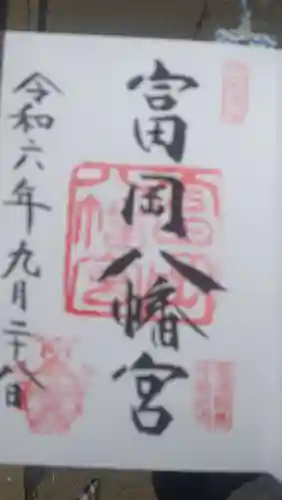 富岡八幡宮
令和六年九月二十八日